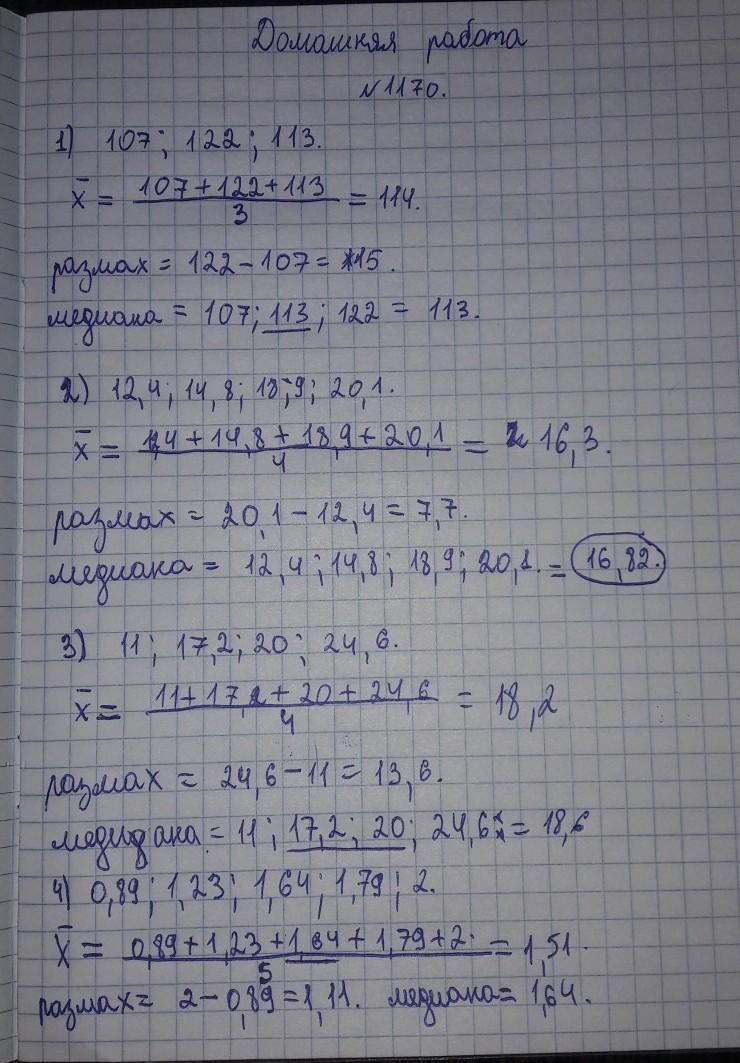 Домашняя работа
№1170.
1) 107; 122; 113.
x̄ = (107+122+113)/3 = 114.
размах = 122-107= 15.
медиана = 107; 113; 122 = 113.
2) 12,4; 14,8; 18,9; 20,1.
x̄ = (12,4 + 14,8 + 18,9 + 20,1)/4 = 16,3.
размах = 20,1 - 12,4 = 7,7.
медиана = 12,4; 14,8; 18,9; 20,1. = 16,82.
3) 11; 17,2; 20; 24,6.
x̄ = (11+17,2+20+24,6)/4 = 18,2
размах = 24,6-11 = 13,6.
медидана = 11; 17,2; 20; 24,6; = 18,6
4) 0,89; 1,23; 1,64; 1,79; 2.
x̄ = (0,89+1,23+1,64+1,79+2)/5 = 1,51.
размах = 2-0,89=1,11. медиана= 1,64.